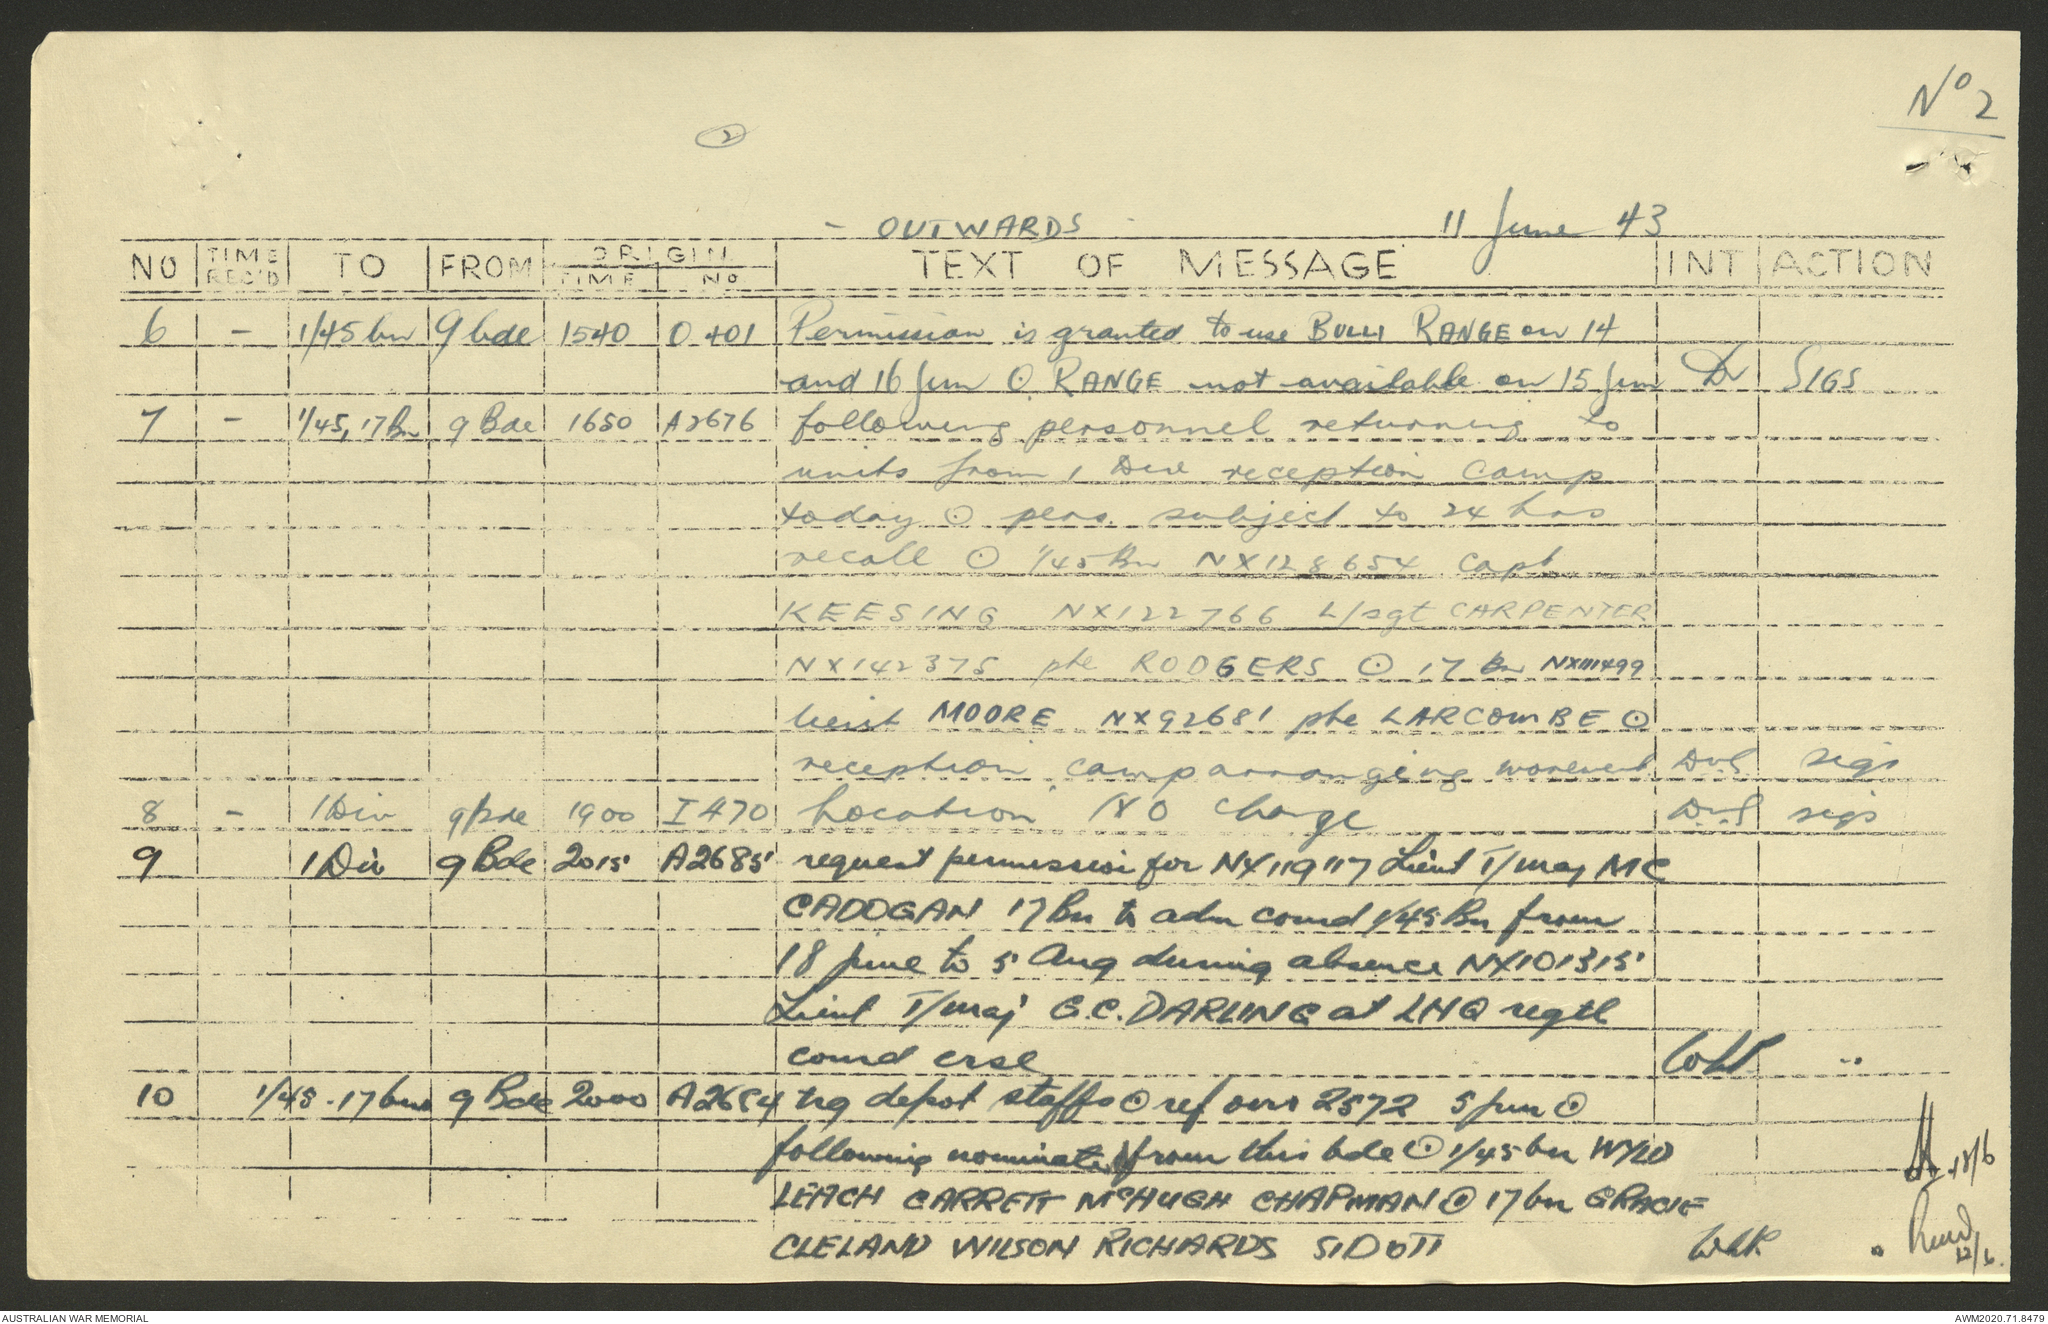 No 2
2
- OUTWARDS - 11 June 43
NO TIME REC'D TO FROM ORIGIN TIME No TEXT OF MESSAGE INT ACTION
6 - 1/45 bn 9 bde 1540 O 401 Permission is granted to use BULLI RANGE on 14
and 16 Jun ⊙ RANGE not available on 15 Jun SIGS
7 - 1/45, 17 Bn 9 Bde 1650 A2676 following personnel returning to
units from 1 Div reception camp
today ⊙ pers. subject to 24 hrs
recall ⊙ 1/45 Bn NX128654 Capt
KEESING NX122766 L/sgt CARPENTER
NX142375 pte RODGERS ⊙ 17 Bn NX111499
Lieut MOORE NX92681 pte LARCOMBE ⊙
reception camp arranging movement sigs
8 - 1 Div 9 Bde 1900 I 470 Location no change sigs
9 1 Div 9 Bde 2015 A2685 request permission for NX119117 Lieut T/maj MC
CADOGAN 17 Bn to adm comd 1/45 Bn from
18 June to 5 Aug during absence NX101315
Lieut T/maj G.C. DARLING at LHQ regtl
comd crse WLP "
10 1/45 - 17 bns 9 Bde 2000 A2684 trg depot staffs ⊙ ref our 2572 5 jun ⊙
following nominated from this bde ⊙ 1/45 bn WYLD
LEACH GARRETT McHUGH CHAPMAN ⊙ 17 bn GRACIE
CLELAND WILSON RICHARDS SIDOTI WLP.
12/6.
AUSTRALIAN WAR MEMORIAL AWM2020.71.8479